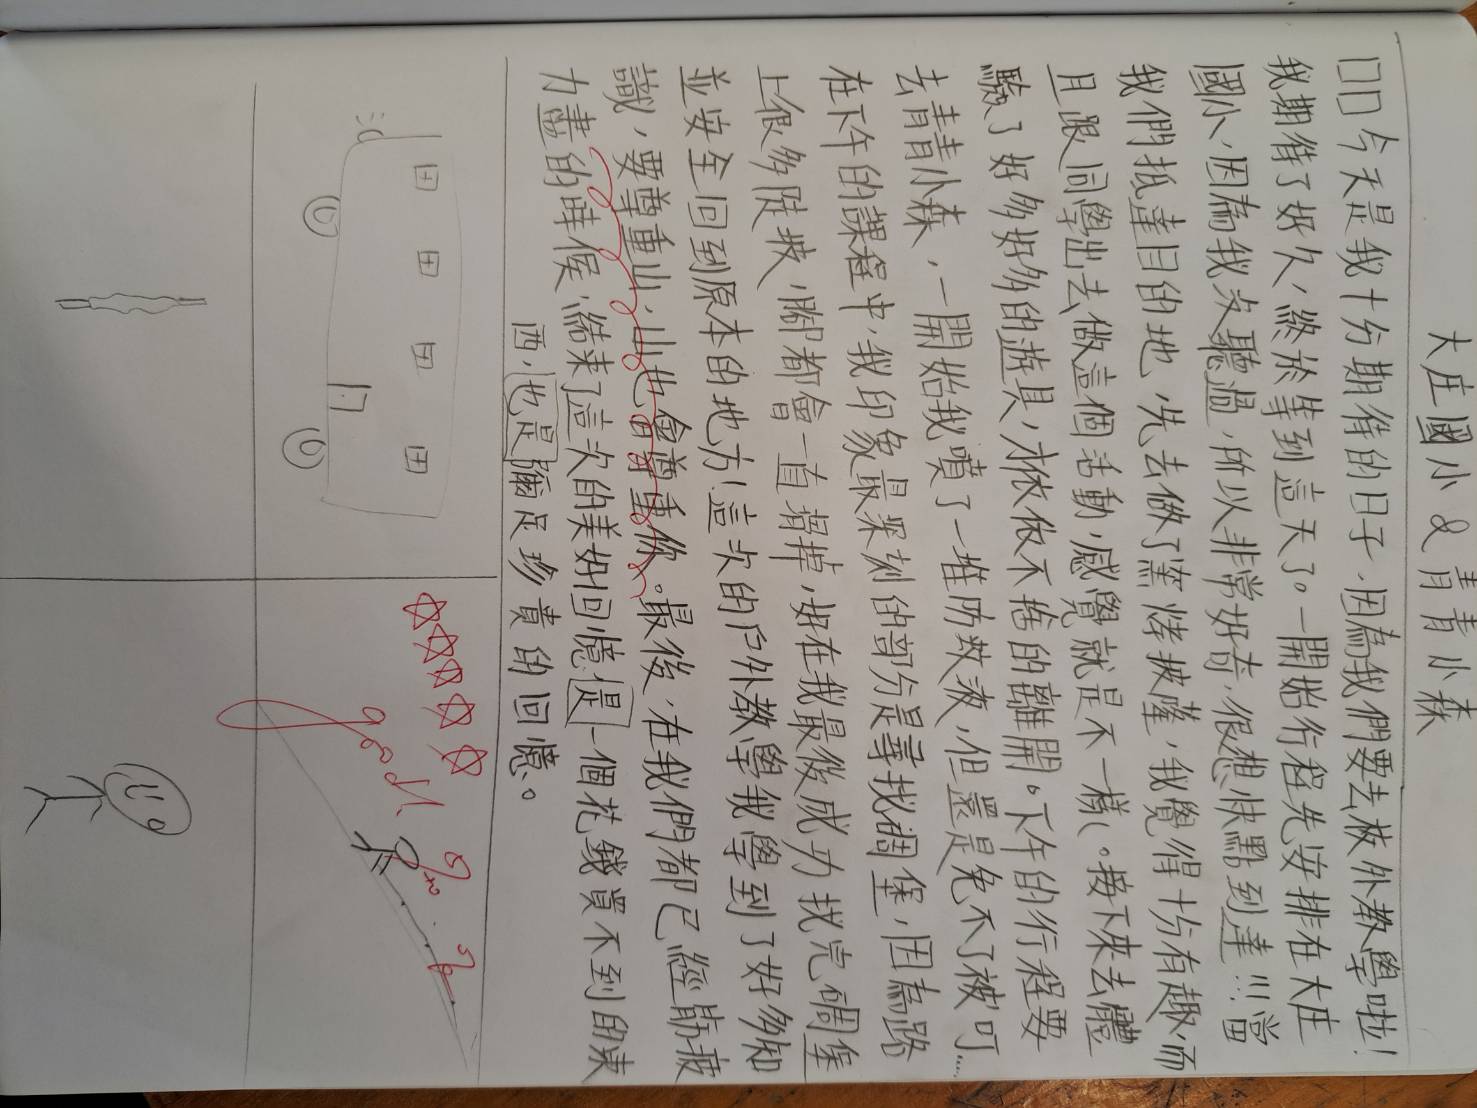 大庄國小&青青小森
□□今天是我十分期待的日子,因為我們要去校外教學啦!
我期待了好久,終於等到這天了。一開始行程先安排在大庄
國小,因為我沒聽過,所以非常好奇,很想快點到達!!!當
我們抵達目的地,先去做了窯烤披薩,我覺得十分有趣,而
且跟同學出去做這個活動,感覺就是不一樣(。接下來去體
驗了好多好多的遊具,才依依不捨的離開。下午的行程要
去青青小森,一開始我噴了一堆防蚊液,但還是免不了被叮……
在下午的課程中,我印象最深刻的部分是尋找碉堡,因為路
上很多陡坡,腳都會一直滑掉,好在我最後成功找完碉堡
並安全回到原本的地方!這次的戶外教學我學到了好多知
識,要尊重山,山也會尊重你。最後,在我們都已經筋疲
力盡的時候,結束了這次的美好回憶,是一個花錢買不到的東
西,也是彌足珍貴的回憶。
Good